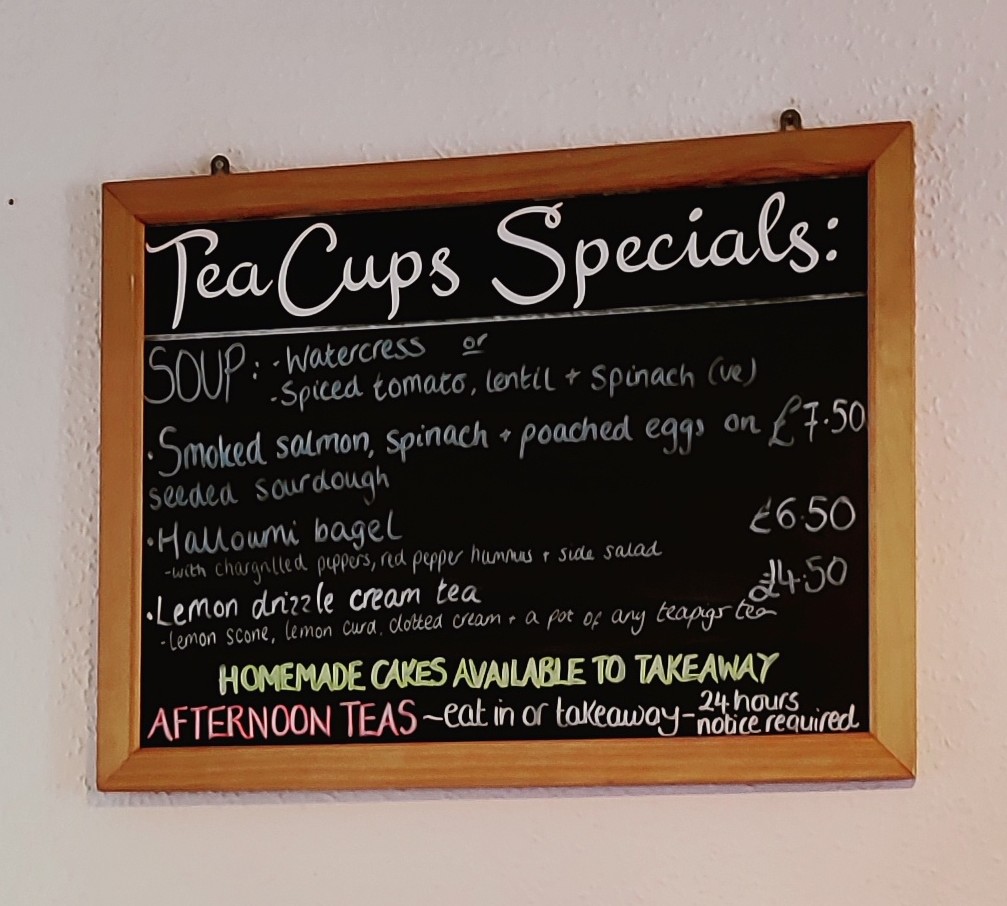 Tea Cups Specials:
SOUP: - Watercress or
- Spiced tomato, lentil + Spinach (ve)
• Smoked salmon, spinach + poached eggs on £7.50
seeded sourdough
• Halloumi bagel £6.50
- with chargrilled peppers, red pepper hummus + side salad
• Lemon drizzle cream tea £4.50
- lemon scone, lemon curd, clotted cream + a pot of any teapigs tea
HOMEMADE CAKES AVAILABLE TO TAKEAWAY
AFTERNOON TEAS ~ eat in or takeaway - 24 hours
notice required